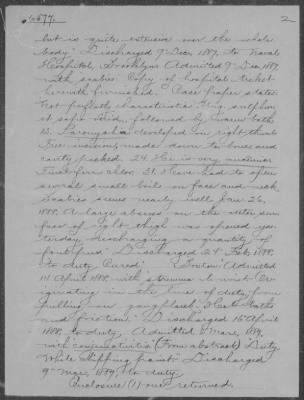 6577.
2
but is quite extensive over the whole
body." Discharged 9 Dec. 1887, to Naval
Hospital, Brooklyn. Admitted 9 Dec. 1887
with scabies. Copy of hospital ticket
herewith furnished. Case paper states
"Not perfectly characteristic. Ung. sulphur
et sapo followed by warm baths
13. developed on right thumb
Free incisions made down to bone and
cavity packed. 24. He is very
Tinct. ferri chlor. 31. Have had to open
several small boils on face and neck.
Scabies seems nearly well. Jan 26,
1888. A large abscess on the
face of right thigh was opened yes-
terday, discharging a quantity of
pus." Discharged 24 Feb. 1888,
to duty. Cured. Admitted
14 April 1888, with
originating in the line of duty from
pulling on gangplank.
and friction. Discharged 16 April
1888, to duty. Admitted 8 Mar. 1889,
with "conjunctivitis" (From abstract) Duty.
While Discharged
9 Mar. 1889, to duty.
Enclosure (1) one returned.